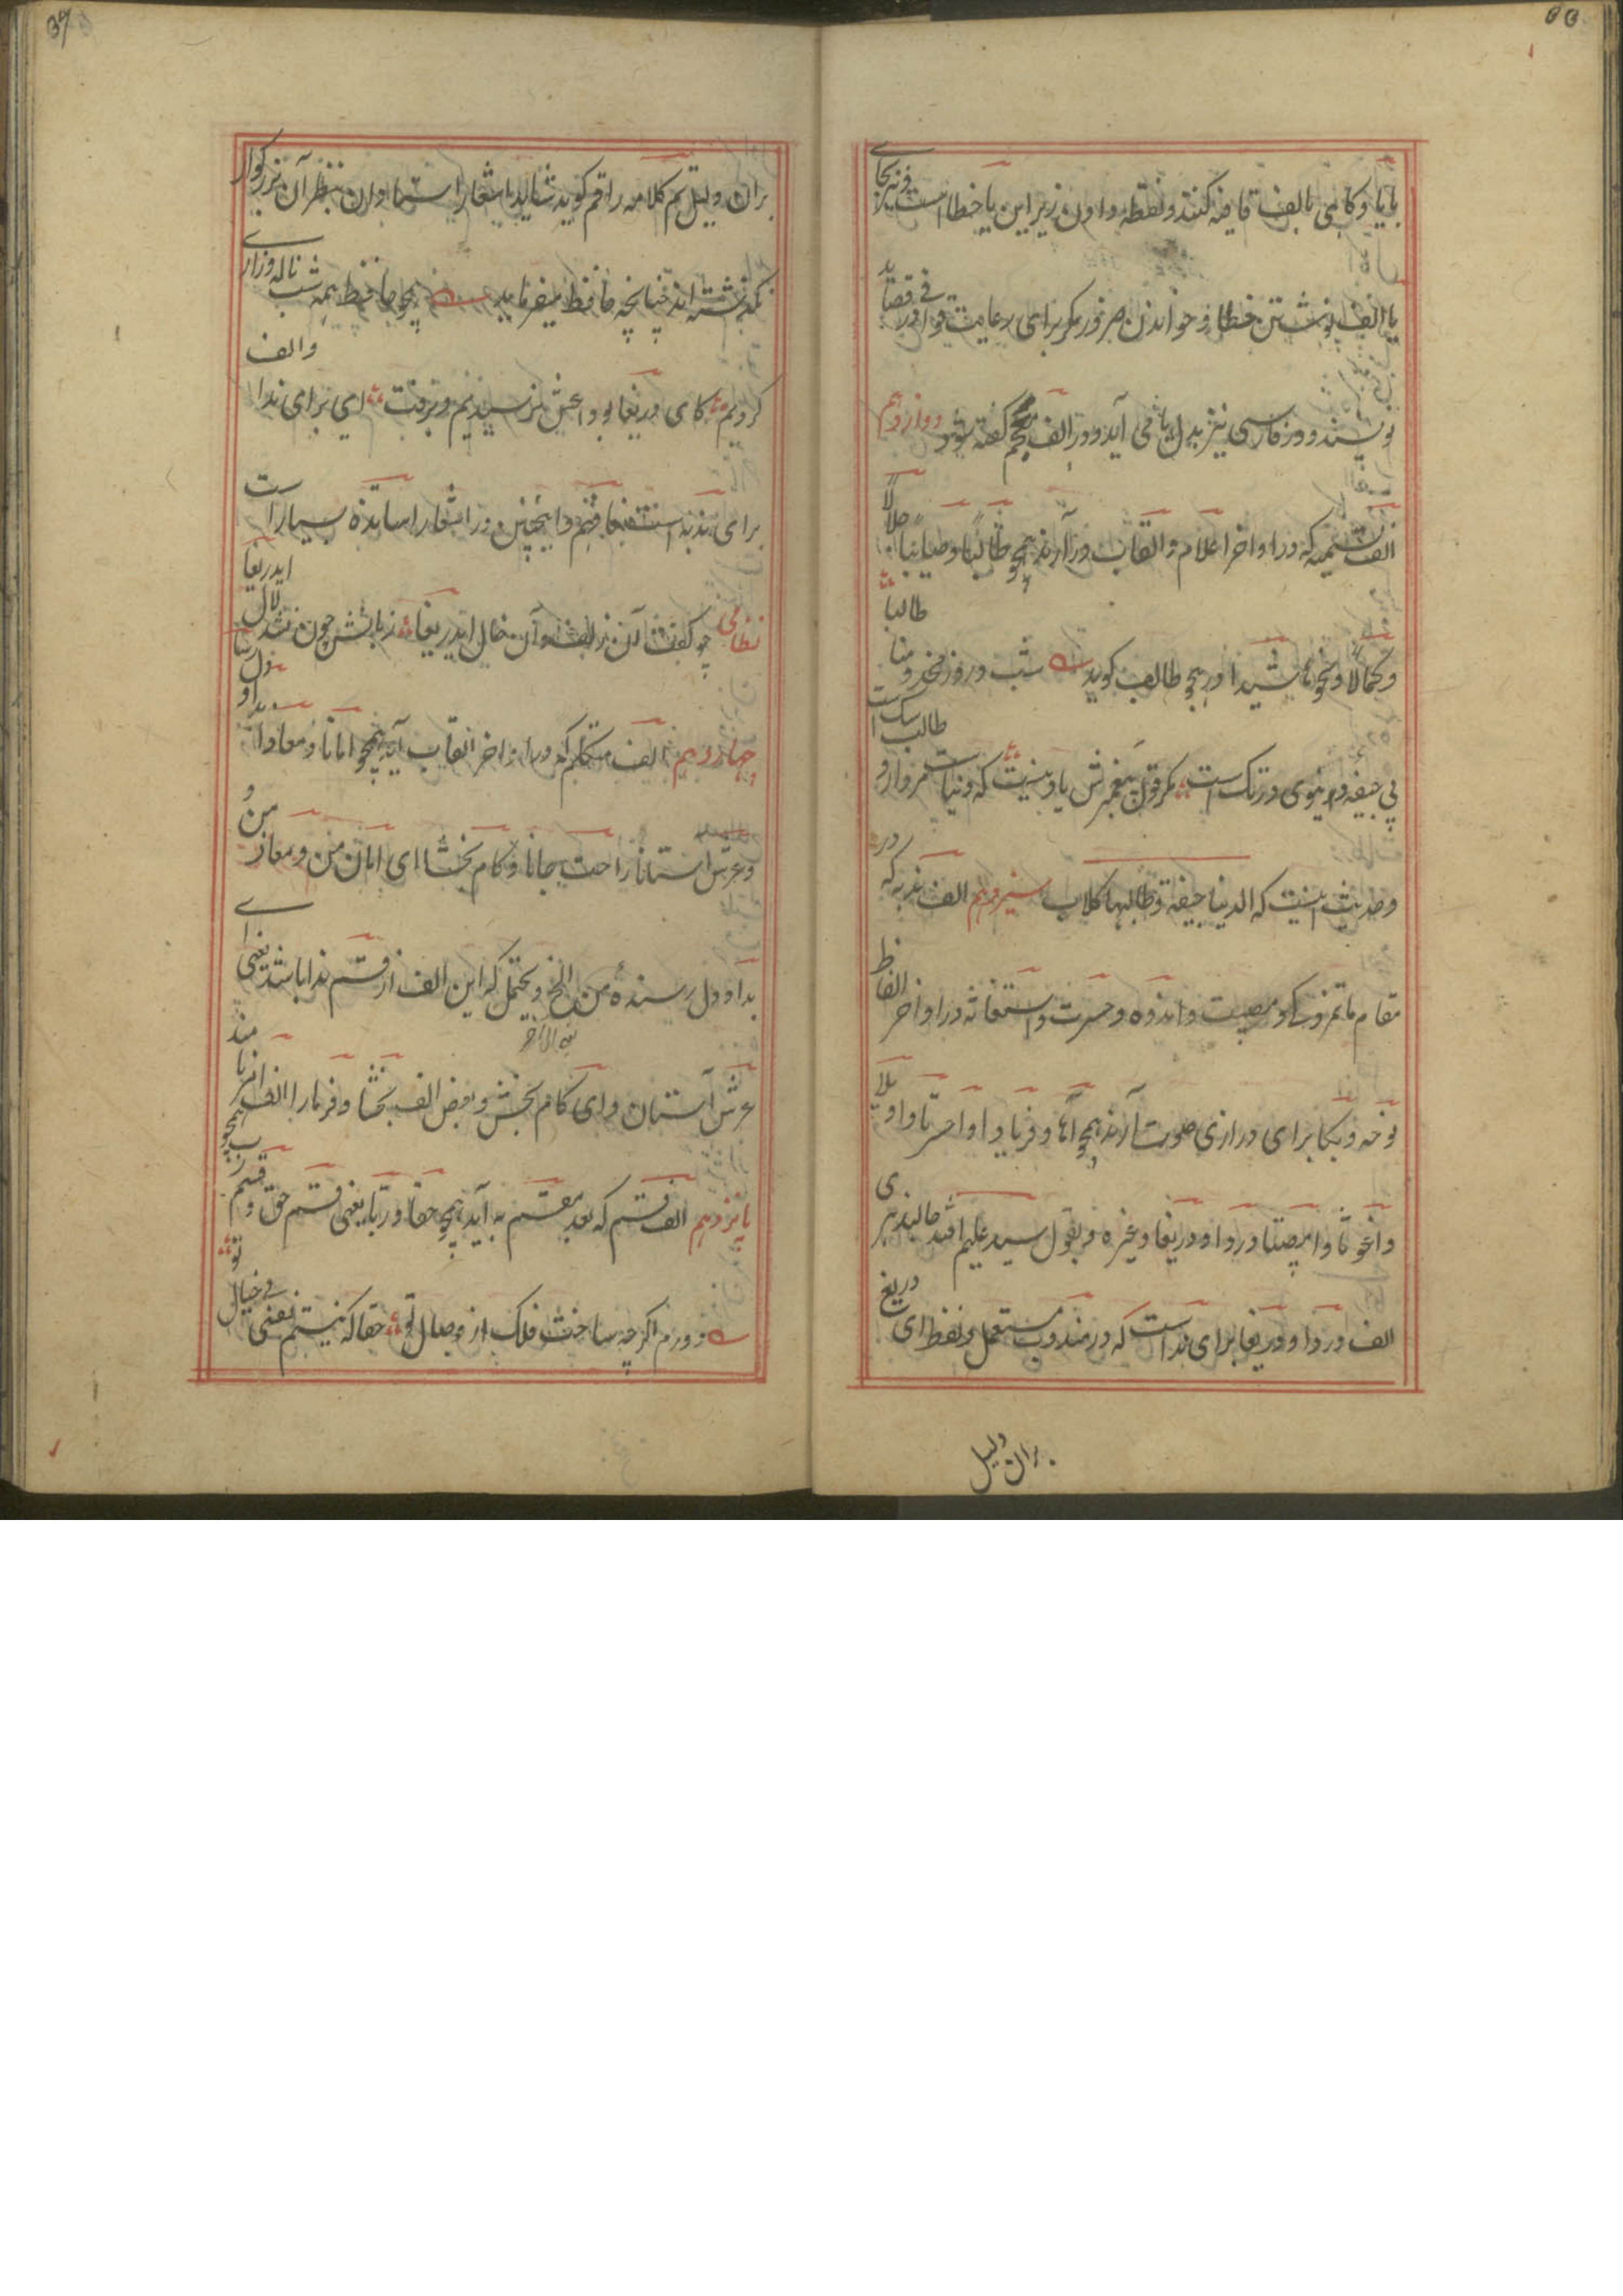 با یا و کاهی با الف قافیه کنند و نقطه دادن زیر این یا خطا است و نیز بجای
یا الف نوشتن خطا و خواندن ضرور مکر برای رعایت قوافی در قصاید
نویسند و در فارسی نیز بدل یا می آید و در الف کفته شود دوازدهم
الف تسمیه که در اواخر اعلام و القاب در آرند همچو طالبا و صایبا جلالا
و کمالا و نحو شیدا در هجو طالب کوید شب و روز مخدومنا طالبا
پی جیفه دنیوی در تک است مکر قول پیغمبرش یاد نیست که دنیاست مردار و طالب سک است
و حدیث اینست که الدنیا جیفة و طالبها کلاب سیزدهم الف ندبه که در
مقام ماتم زدکی و مصیبت و اندوه و حسرت و استغاثه در اواخر الفاظ
نوحه و بکا برای درازی صوت آرند همچو آها و فریادا و احسرتا و اویلا
واغوثا و امصیبتا و دردا و دریغا و غیره و بقول سید علیم الله جالیندهری
الف دردا و دریغا برای نداست که در مندوب مستعمل و لفظ ای دریغ
بران دلیل
بران دلیل تم کلامه راقم کوید شاید اشعار استادان بنظر آن بزرکوار
نکذشته اند چنانچه حافظ میفرماید همچو حافظ همه شب ناله و زاری
کردیم کای دریغا بوداعش نرسیدیم و برفت ای برای ندا و الف
برای ندبه است فافهم و اینچنین در اشعار اساتذه بسیار است
نظامی چو کفت آن زلف و آن خال ایدریغا زبانش چون نشد لال ایدریغا
چهاردهم الف متکلم که در اواخر القاب آید همچو امانا و معاذا
و عرش استانا راحت جانا و کام بخشا ای امان من و معاذ من و
بداو دل رسنده من الخ و یحتمل که این الف از قسم ندا باشد یعنی ای
عرش آستان و ای کام بخش و بعض الف بخشا و فرما را الف امر نامند
پانزدهم الف قسم که بعد مقسم به آید همچو حقا و ربا یعنی قسم حق و قسم رب
دورم اکرچه ساخت فلک از وصال تو حقا که نیستم نفسی بی خیال تو